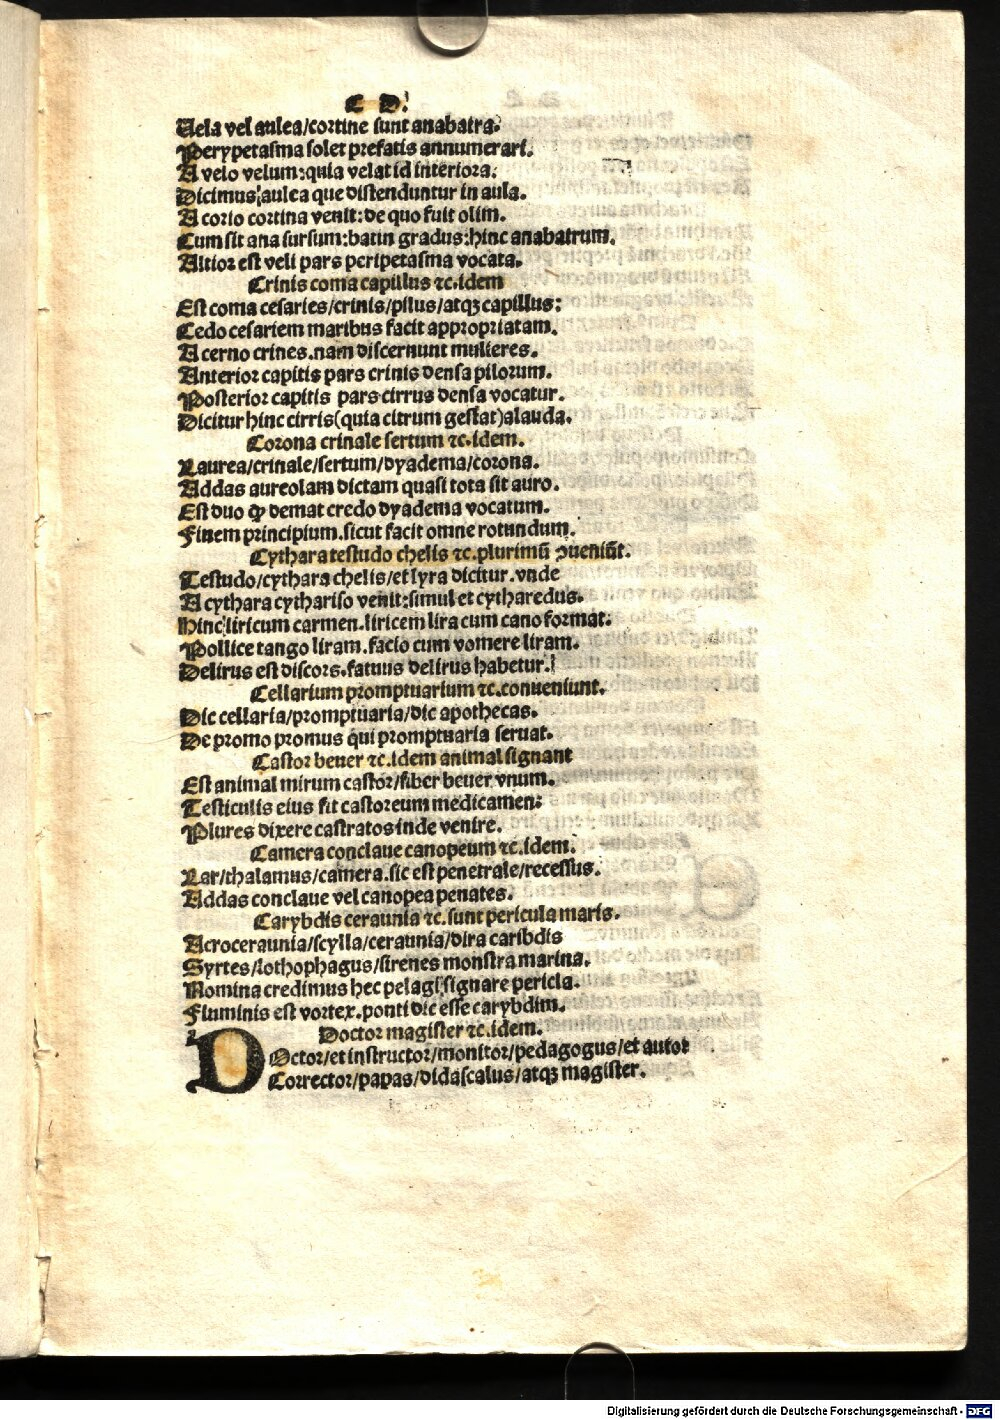 C D.
Uela vel aulea/cortine sunt anabatra.
Perypetasma solet prefatis annumerari.
A velo velum:quia velat id interiora.
Dicimus aulea que distenduntur in aula.
A corio cortina venit: de quo fuit olim.
Cum sit ana sursum:batin gradus:hinc anabatrum.
Altior est veli pars peripetasma vocata.
Crinis coma capillus ⁊c.idem
Est coma cesaries/crinis/pilus/atqꝫ capillus:
Cedo cesariem maribus facit appropriatam.
A cerno crines.nam discernunt mulieres.
Anterior capitis pars crinis densa pilorum.
Posterior capitis pars cirrus densa vocatur.
Dicitur hinc cirris(quia citrum gestat)alauda.
Corona crinale sertum ⁊c.idem.
Laurea/crinale/sertum/dyadema/corona.
Addas aureolam dictam quasi tota sit auro.
Est duo ꝙ demat credo dyadema vocatum.
Finem principium.sicut facit omne rotundum.
Cythara testudo chelis ⁊c.plurimū ꝯueniūt.
Testudo/cythara chelis/et lyra dicitur.vnde
A cythara cythariso venit:simul et cytharedus.
Hinc liricum carmen.liricem lira cum cano format:
Pollice tango liram.facio cum vomere liram.
Delirus est discors.fatuus delirus habetur.
Cellarium promptuarium ⁊c.conueniunt.
Dic cellaria/promptuaria/dic apothecas.
De promo promus qui promptuaria seruat.
Castor beuer ⁊c.idem animal signant
Est animal mirum castor/fiber beuer vnum.
Testiculis eius fit castoreum medicamen:
Plures dixere castratos inde venire.
Camera conclaue canopeum ⁊c.idem.
Lar/thalamus/camera.sic est penetrale/recessus.
Addas conclaue vel canopea penates.
Carybdis ceraunia ⁊c.sunt pericula maris.
Acroceraunia/scylla/ceraunia/dira caribdis
Syrtes/lothophagus/sirenes monstra marina.
Nomina credimus hec pelagi signare pericla.
Fluminis est vortex.ponti dic esse carybdim.
Doctor magister ⁊c.idem.
DOctor/et instructor/monitor/pedagogus/et autor
Corrector/papas/didascalus/atqꝫ magister.
Digitalisierung gefördert durch die Deutsche Forschungsgemeinschaft - DFG